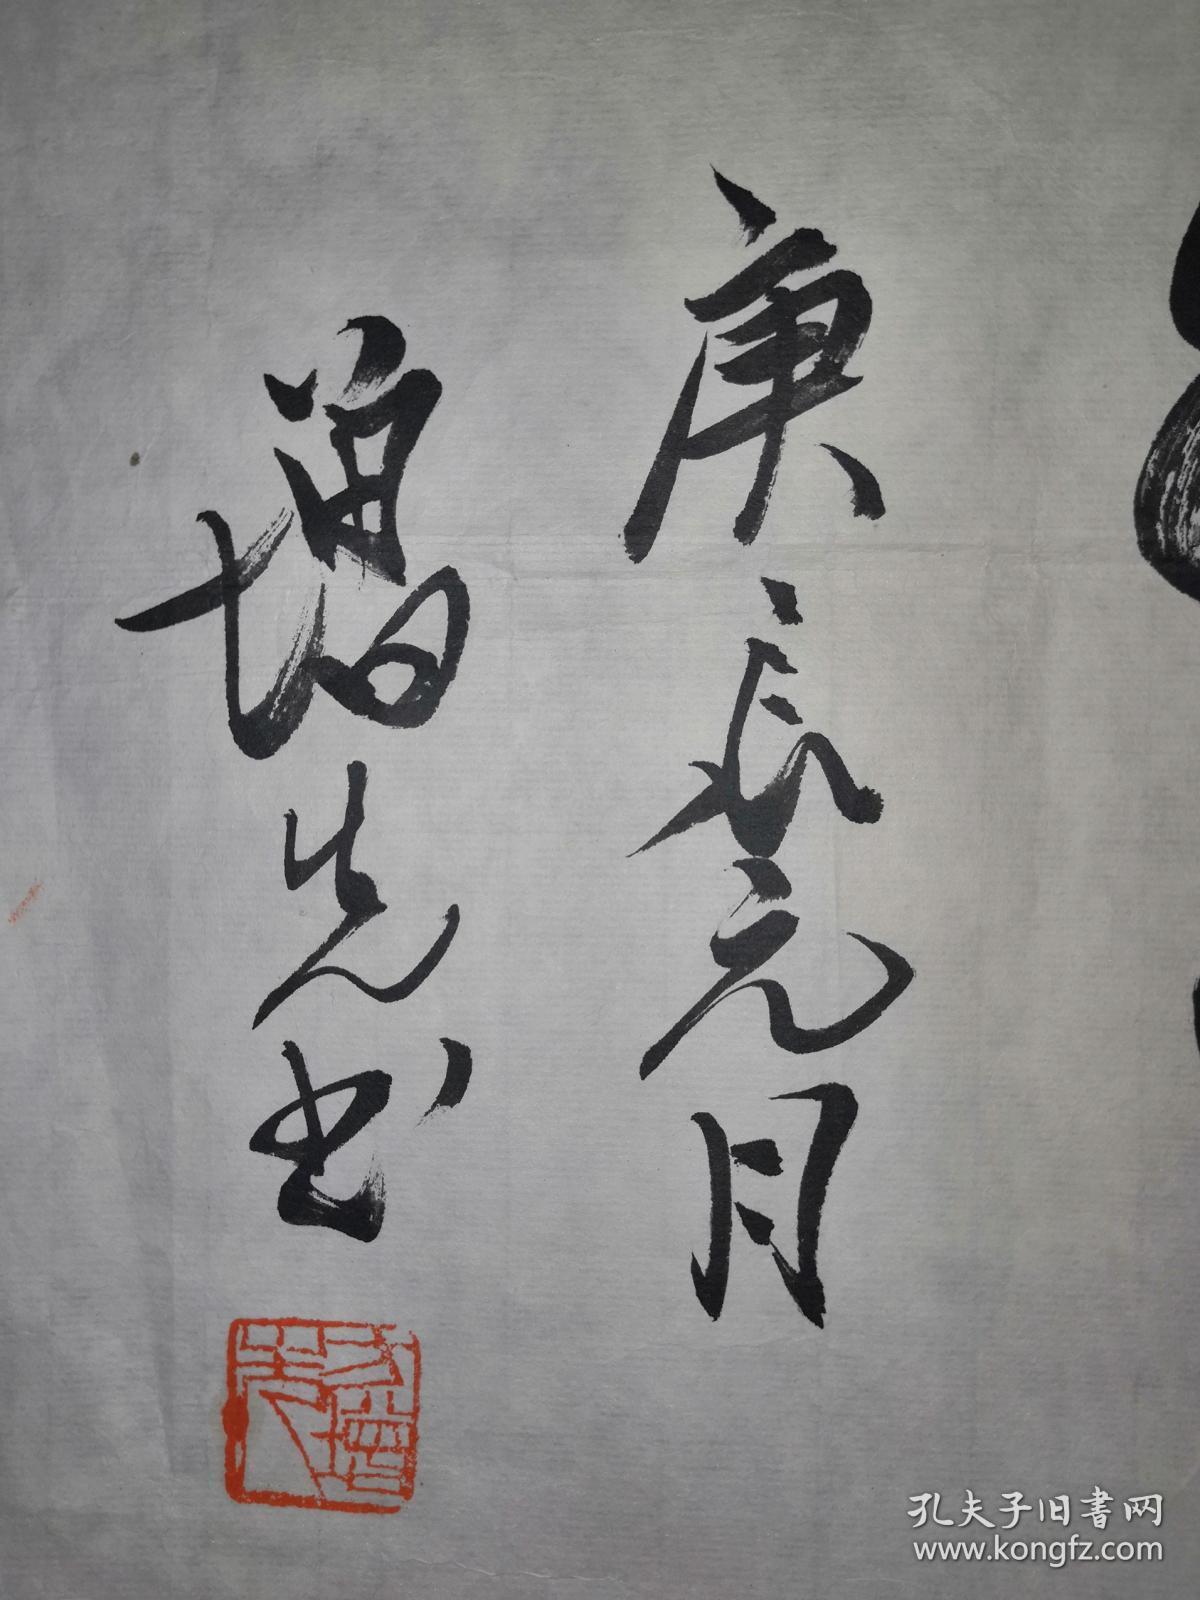 庚辰元月
增先书
方增先
孔夫子旧書网
www.kongfz.com